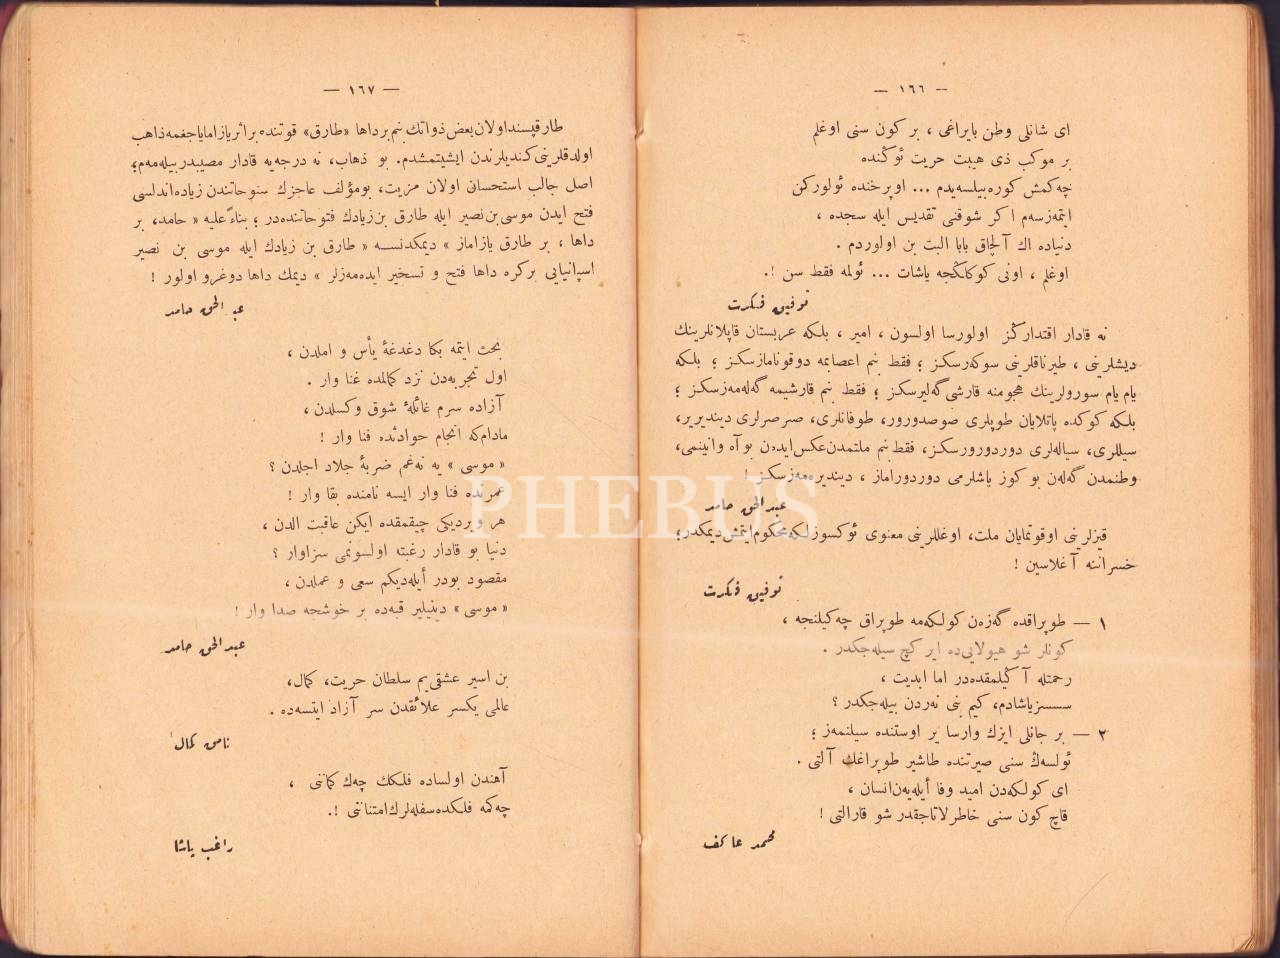 — ١٦٦ —
ای شانلی وطن بایراغی ، بر کون سنی اوغلم
بر موکب ذی هیبت حریت ئوڭنده
چه‌کمش کوره‌بیلسه‌یدم ... اوپرخنده ئولورکن
ایتمه‌زسه‌م اکر شوقنی تقدیس ایله سجده ،
دنیاده اك آلچاق بابا البت بن اولوردم .
اوغلم ، اونی کوکاکجه یاشات ... ئولمه فقط سن !.
توفیق فکرت
نه قادار اقتدارڭز اولورسا اولسون ، امیر ، بلکه عربستان قاپلانلرینك
دیشلرینی ، طیرناقلرینی سوکه‌رسکز ؛ فقط بنم اعصابمه دوقونامازسکز ؛ بلکه
یام یام سورولرینك هجومنه قارشی گه‌لیرسکز ؛ فقط بنم قارشیمه گه‌له‌مه‌زسکز ؛
بلکه کوکده پاتلایان طوپلری صوصدورور، طوفانلری، صرصرلری دیندیریر،
سیللری، سیاله‌لری دوردورورسکز، فقط بنم ملتمدن‌عکس‌ایده‌ن بو آه وانینمی،
وطنمدن گه‌له‌ن بو کوز یاشلرمی دوردوراماز ، دیندیره‌مه‌زسکز !
عبدالحق حامد
قیزلرینی اوقوتمایان ملت، اوغللرینی معنوی ئوکسوزلکه محکوم‌ایتمش‌دیمکدر؛
خسراننه آغلاسین !
توفیق فکرت
١ — طوپراقده گه‌زه‌ن کولکه‌مه طوپراق چه‌کیلنجه ،
کونلر شو هیولایی‌ده ایر کچ سیله‌جکدر .
رحمتله آکیلمقده‌در اما ابدیت ،
سسسزیاشادم، کیم بنی نه‌ردن بیله‌جکدر ؟
٢ — بر جانلی ایزك وارسا یر اوستنده سیلنمه‌ز ؛
ئولسه‌ك سنی صیرتنده طاشیر طوپراغك آلتی .
ای کولکه‌دن امید وفا أیله‌یه‌ن‌انسان ،
قاچ کون سنی خاطرلاتاجقدر شو قارالتی !
محمد عاکف
— ١٦٧ —
طارقپسند اولان بعض ذواتك بنم بر داها «طارق» قوتنده بر اثر یازامایاجغمه ذاهب
اولدقلرینی کندیلرندن ایشیتمشدم. بو ذهاب، نه درجه‌یه قادار مصیبدر بیله‌مه‌م؛
اصل جالب استحسان اولان مزیت، بو مؤلف عاجزك سنوحاتندن زیاده اندلسی
فتح ایدن موسی بن نصیر ایله طارق بن زیادك فتوحاتنده‌در ؛ بناءً علیه « حامد، بر
داها ، بر طارق یازاماز » دیمکدنسه « طارق بن زیادك ایله موسی بن نصیر
اسپانیایی برکره داها فتح و تسخیر ایده‌مه‌زلر » دیمك داها دوغرو اولور !
عبد الحق حامد
بحث ایتمه بکا دغدغهٔ یأس و املدن ،
اول تجربه‌دن نزد کمالمده غنا وار .
آزاده سرم غائلهٔ شوق وکسلدن ،
مادام‌که انجام حوادثده فنا وار !
« موسی » یه نه‌غم ضربهٔ جلاد اجلدن ؟
عمرنده فنا وار ایسه نامنده بقا وار !
هر ویردیکی چیقمقده ایکن عاقبت الدن ،
دنیا بو قادار رغبته اولسونمی سزاوار ؟
مقصود بودر أیله‌دیکم سعی و عملدن ،
« موسی » دینیلیر قبه‌ده بر خوشجه صدا وار !
عبدالحق حامد
بن اسیر عشقی‌یم سلطان حریت، کمال،
عالمی یکسر علائقدن سر آزاد ایتسه‌ده .
نامق کمال
آهندن اولساده فلکك چه‌ك کماننی ،
چه‌کمه فلکده سفله‌لرك امتناننی !.
راغب پاشا
PHEBUS